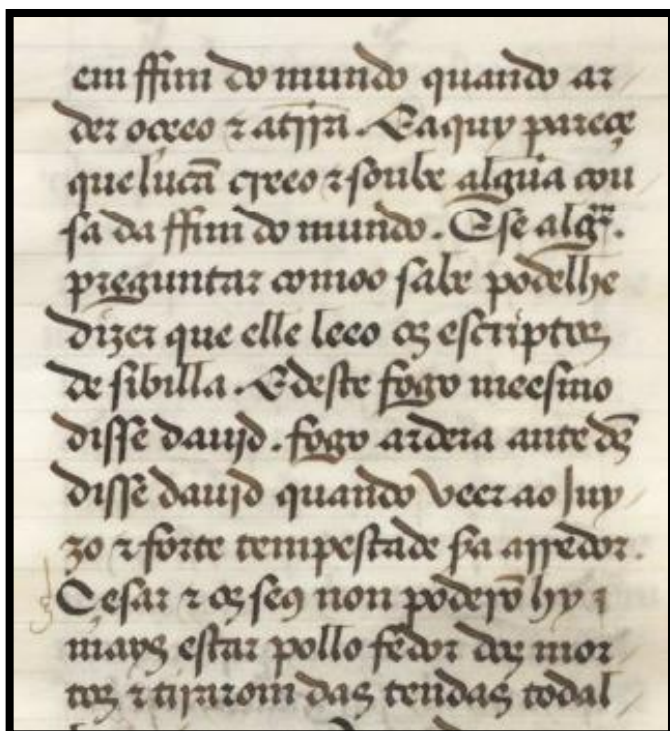 em ffim do mundo quando ar
der oçeo ⁊ aterra. E aquy pareçe
que lucã creeo ⁊ soube algũa cou
sa da ffim do mundo. E se alg.
preguntar como o sabe podelhe
dizer que elle leeo os escriptos
de sibilla. E deste fogo meesmo
disse dauid. fogo ardera ante d̃s
disse dauid quando veer ao Juy
zo ⁊ forte tempestade sa arredor.
Çesar ⁊ os seꝯ non poderõ hy
mays estar pollo fedor dos mor
tos ⁊ tirarom das tendas todal